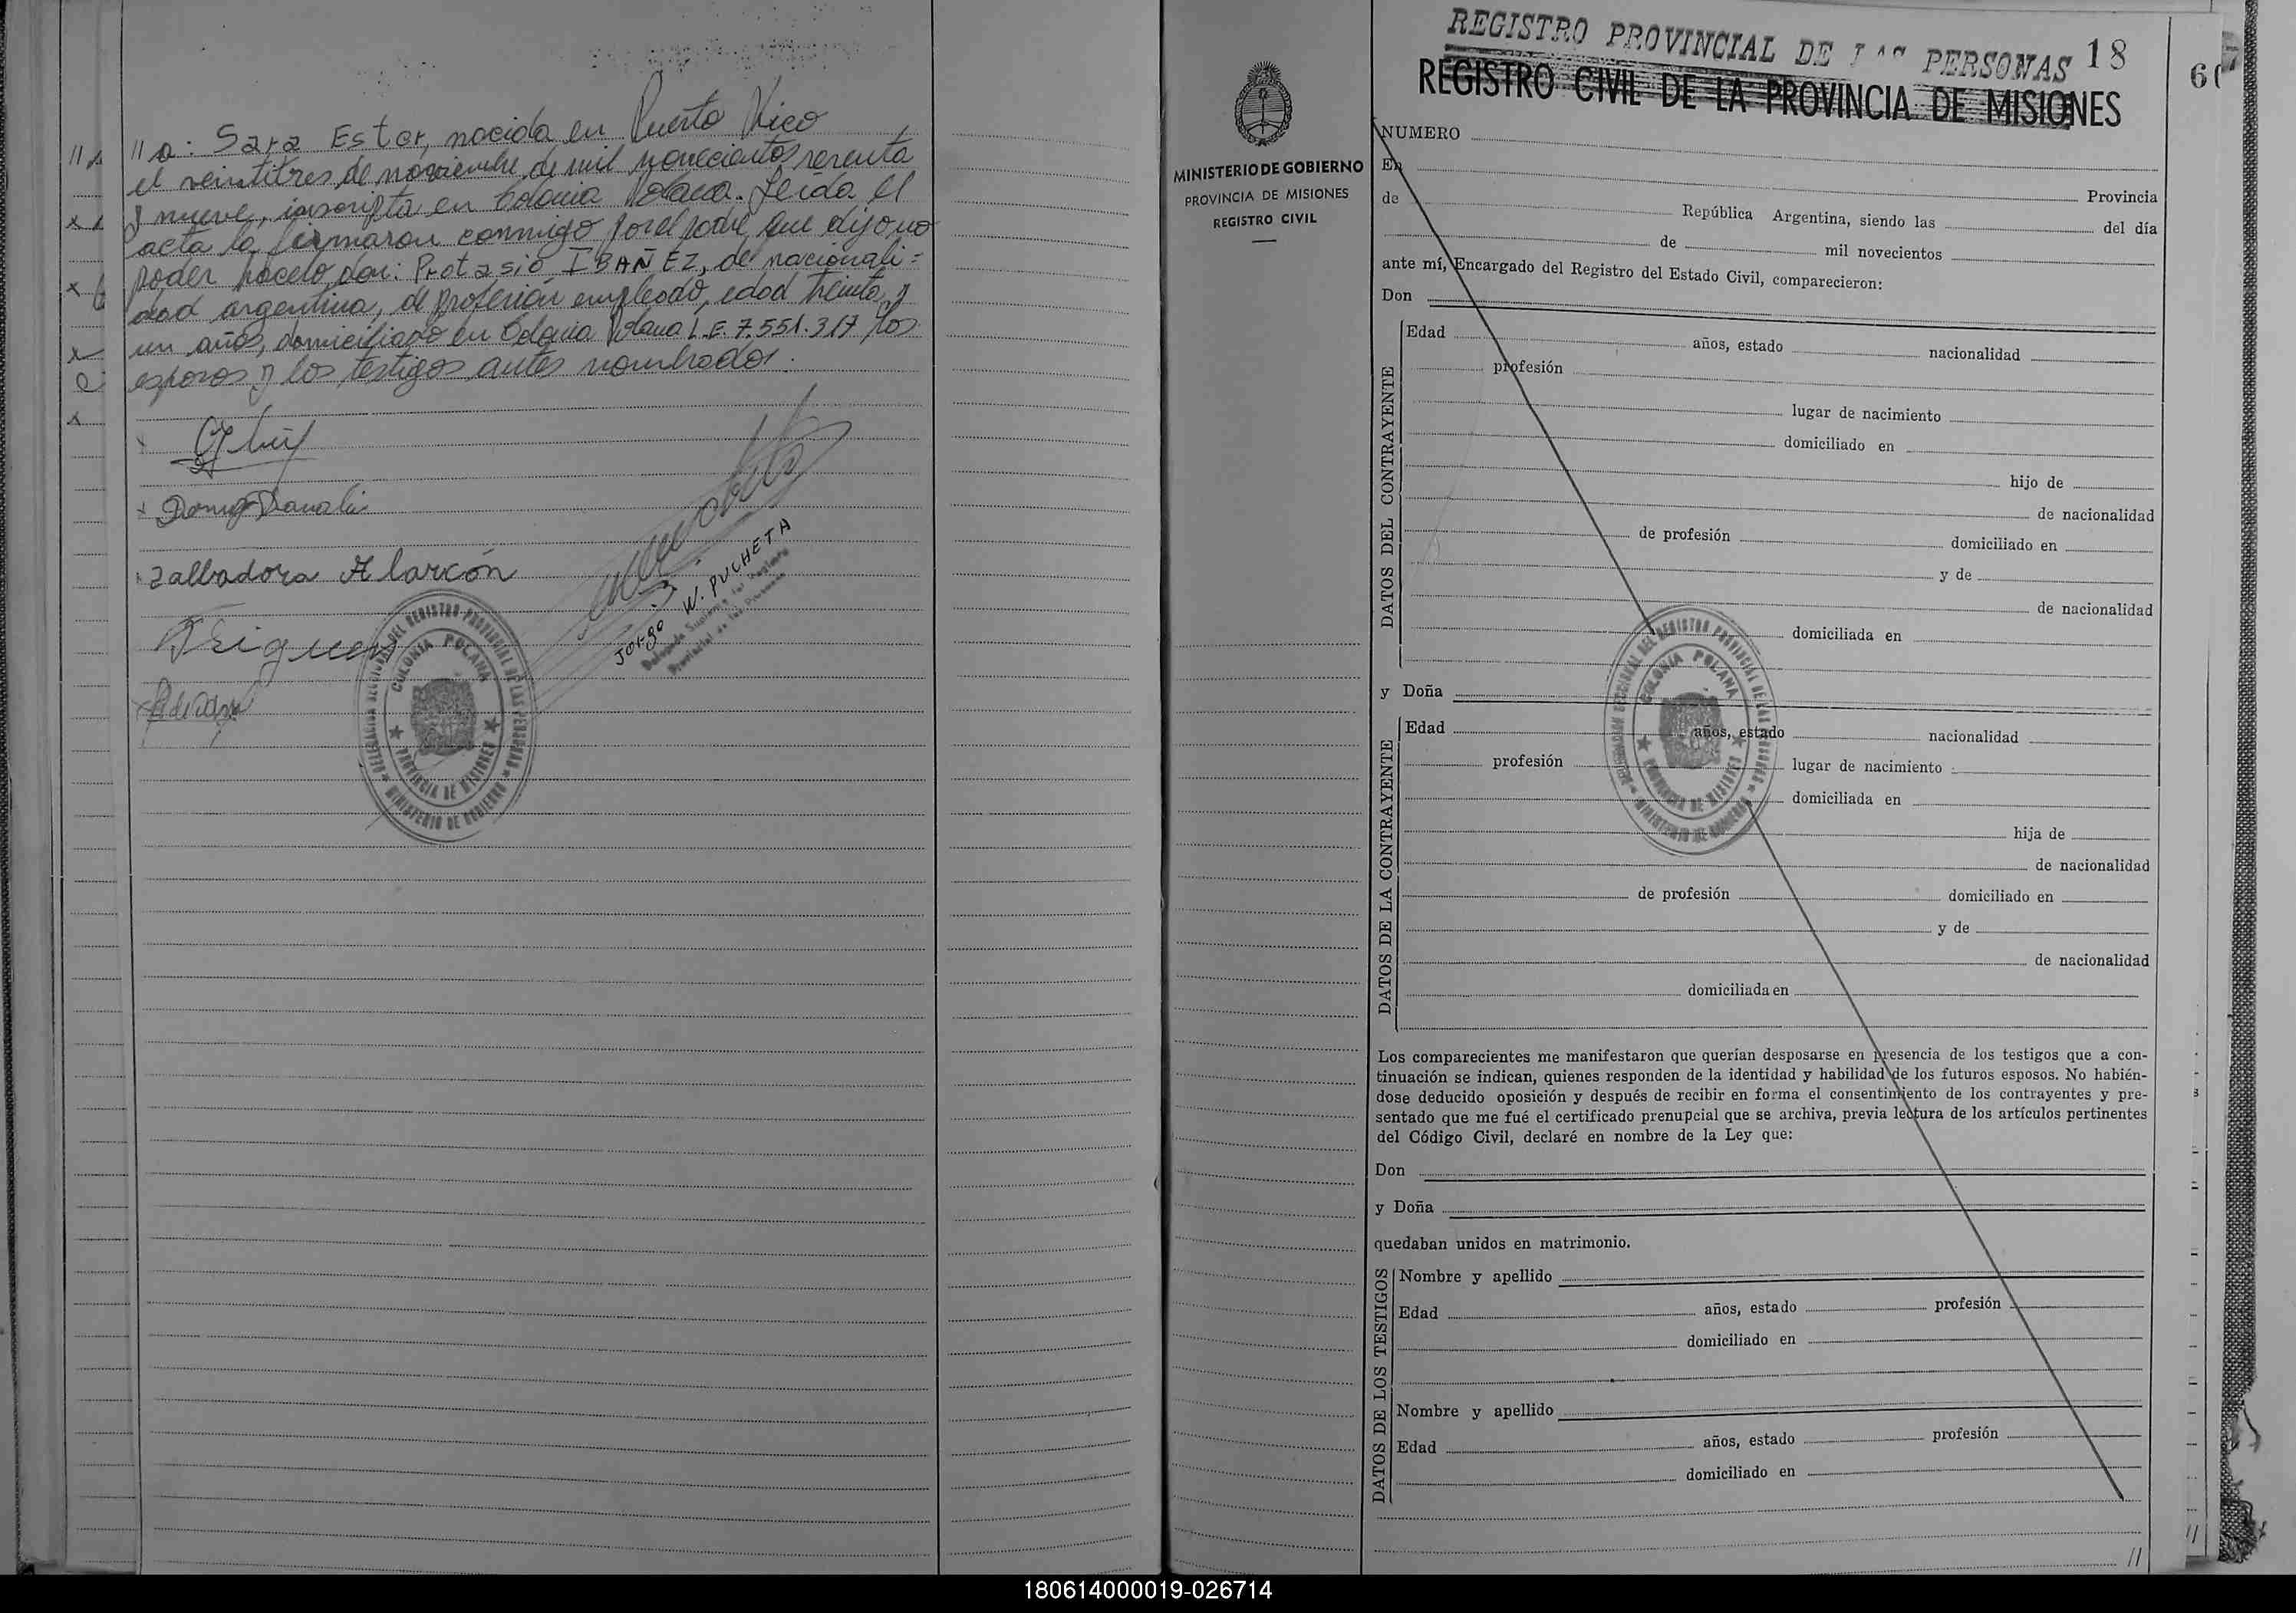 //a: Sara Ester, nacida en Puerto Rico
el veintitres de noviembre de mil novecientos sesenta
y nueve, inscripta en Colonia Polana. Leida el
acta la firmaron conmigo, por el padre que dijo no
poder hacerlo, don: Protasio IBAÑEZ, de nacionali=
dad argentina, de profesión empleado, edad treinta y
un años, domiciliado en Colonia Polana L.E. 7.551.317 los
esposos y los testigos antes nombrados.
Zalbadora Alarcón
Jorge W. PUCHETA
Delegado Suplente del Registro
Provincial de las Personas
DELEGACION SECCIONAL DEL REGISTRO PROVINCIAL DE LAS PERSONAS
COLONIA POLANA
PROVINCIA DE MISIONES
MINISTERIO DE GOBIERNO
MINISTERIO DE GOBIERNO
PROVINCIA DE MISIONES
REGISTRO CIVIL
REGISTRO PROVINCIAL DE LAS PERSONAS 18
REGISTRO CIVIL DE LA PROVINCIA DE MISIONES
NUMERO
En
Provincia
de República Argentina, siendo las del día
de mil novecientos
ante mí, Encargado del Registro del Estado Civil, comparecieron:
Don
DATOS DEL CONTRAYENTE
Edad años, estado nacionalidad
profesión
lugar de nacimiento
domiciliado en
hijo de
de nacionalidad
de profesión domiciliado en
y de
de nacionalidad
domiciliada en
y Doña
DATOS DE LA CONTRAYENTE
Edad años, estado nacionalidad
profesión lugar de nacimiento
domiciliada en
hija de
de nacionalidad
de profesión domiciliado en
y de
de nacionalidad
domiciliada en
DELEGACION SECCIONAL DEL REGISTRO PROVINCIAL DE LAS PERSONAS
COLONIA POLANA
PROVINCIA DE MISIONES
MINISTERIO DE GOBIERNO
Los comparecientes me manifestaron que querían desposarse en presencia de los testigos que a con-
tinuación se indican, quienes responden de la identidad y habilidad de los futuros esposos. No habién-
dose deducido oposición y después de recibir en forma el consentimiento de los contrayentes y pre-
sentado que me fué el certificado prenupcial que se archiva, previa lectura de los artículos pertinentes
del Código Civil, declaré en nombre de la Ley que:
Don
y Doña
quedaban unidos en matrimonio.
DATOS DE LOS TESTIGOS
Nombre y apellido
Edad años, estado profesión
domiciliado en
Nombre y apellido
Edad años, estado profesión
domiciliado en
//
180614000019-026714